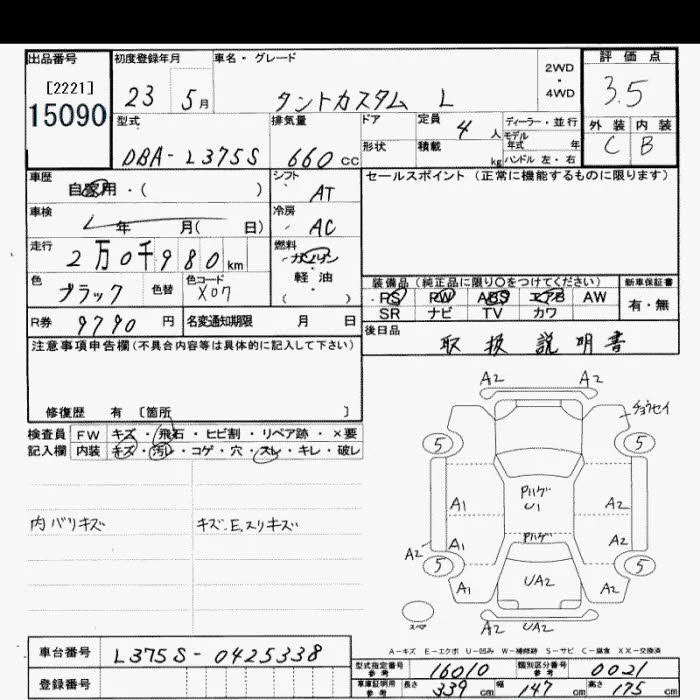 出品番号 初度登録年月 車名・グレード 2WD・4WD 評価点
[2221]
15090
23 5月 タントカスタム L 3.5
型式 排気量 ドア 定員 4人 ディーラー・並行 外装 内装
モデル年式 年
DBA-L375S 660cc 形状 積載 kg ハンドル 左・右 C B
車歴 自家用・( ) シフト AT セールスポイント(正常に機能するものに限ります)
車検 年 月( 日) 冷房 AC
走行 2万0千980km 燃料 ガソリン
軽油
( )
色 ブラック 色替 色コード X07
装備品(純正品に限り○をつけてください) 新車保証書
PS PW ABS エアB AW 有・無
SR ナビ TV カワ
R券 9790円 名変通知期限 月 日
後日品 取扱説明書
注意事項申告欄(不具合内容等は具体的に記入して下さい)
修復歴 有 [箇所 ]
検査員 FW キズ・飛石・ヒビ割・リペア跡・×要
記入欄 内装 キズ・汚レ・コゲ・穴・スレ・キレ・破レ
内バリキズ キズ.E.スリキズ
A2 A2
チョウセイ
5 5
Pハゲ
U1
A1 A2
Pハゲ
A1 A2
A2
5 5
A1 UA2 A2
スペア
A2 UA2
A-キズ E-エクボ U-凹み W-補修跡 S-サビ C-腐食 XX-交換済
車台番号 L375S-0425338
登録番号
型式指定番号 参考 16010 類別区分番号 参考 0021
車庫証明用 参考 長さ 339cm 幅 147cm 高さ 175cm